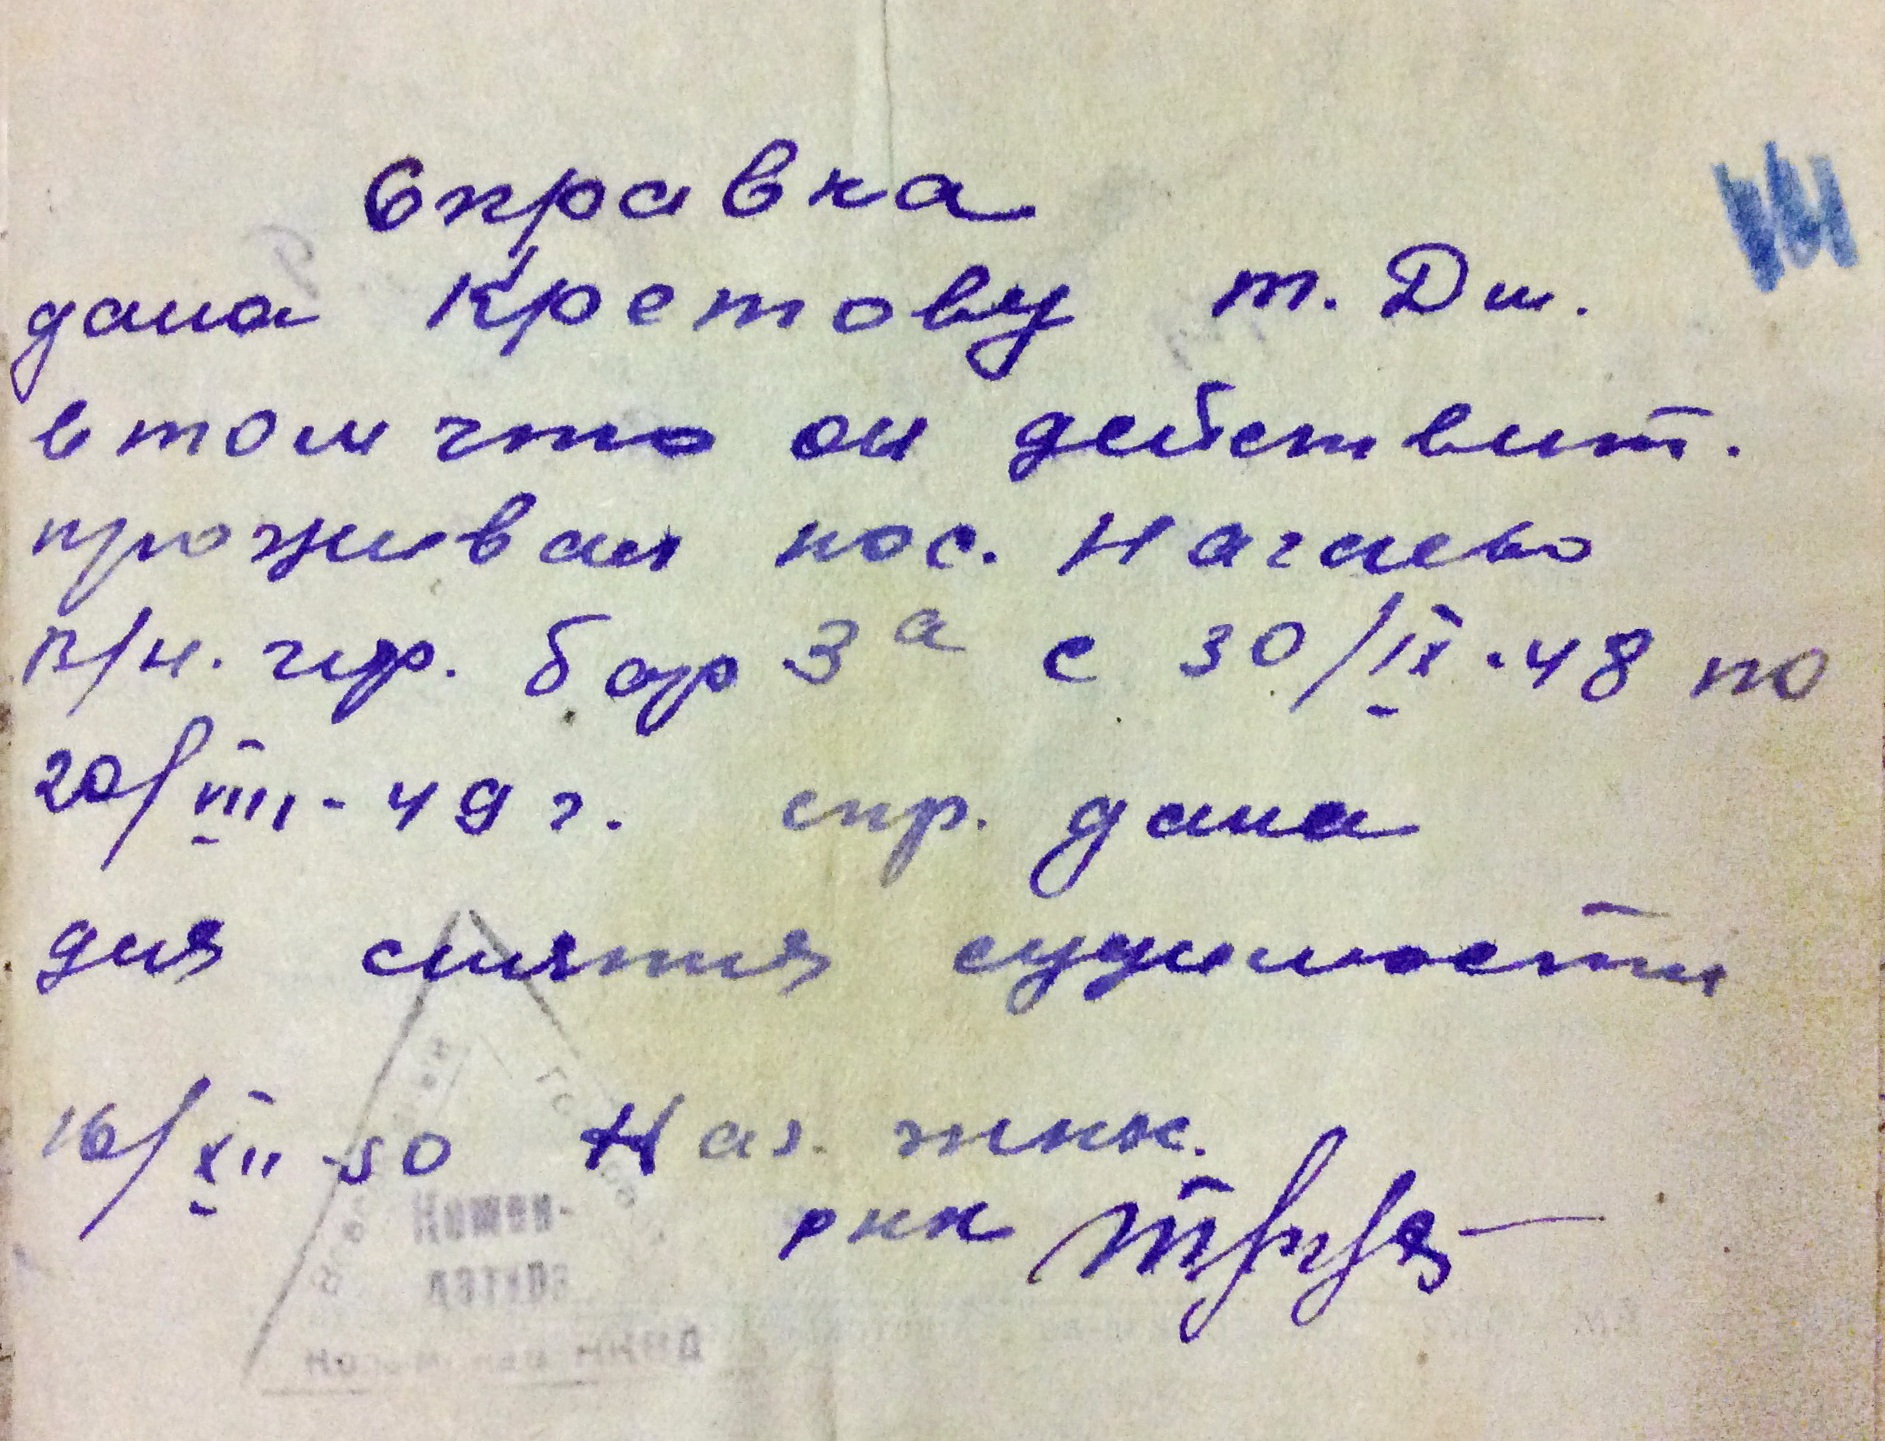 Справка
дана Кретову т. Дм.
в том что он действит.
проживал пос. Нагаево
п/н. гор. бар 3а с 30/IX-48 по
20/VIII-49 г. спр. дана
для снятия судимости
16/XII-50 Наз. жкк.
ркк
Комен-
датура